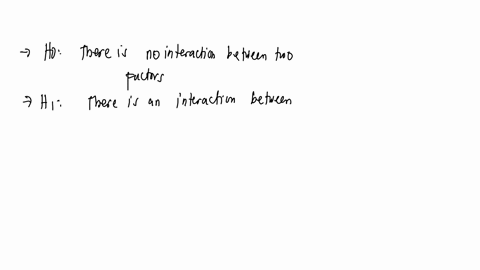 → H0: There is no interaction between two
factors
→ H1: There is an interaction between